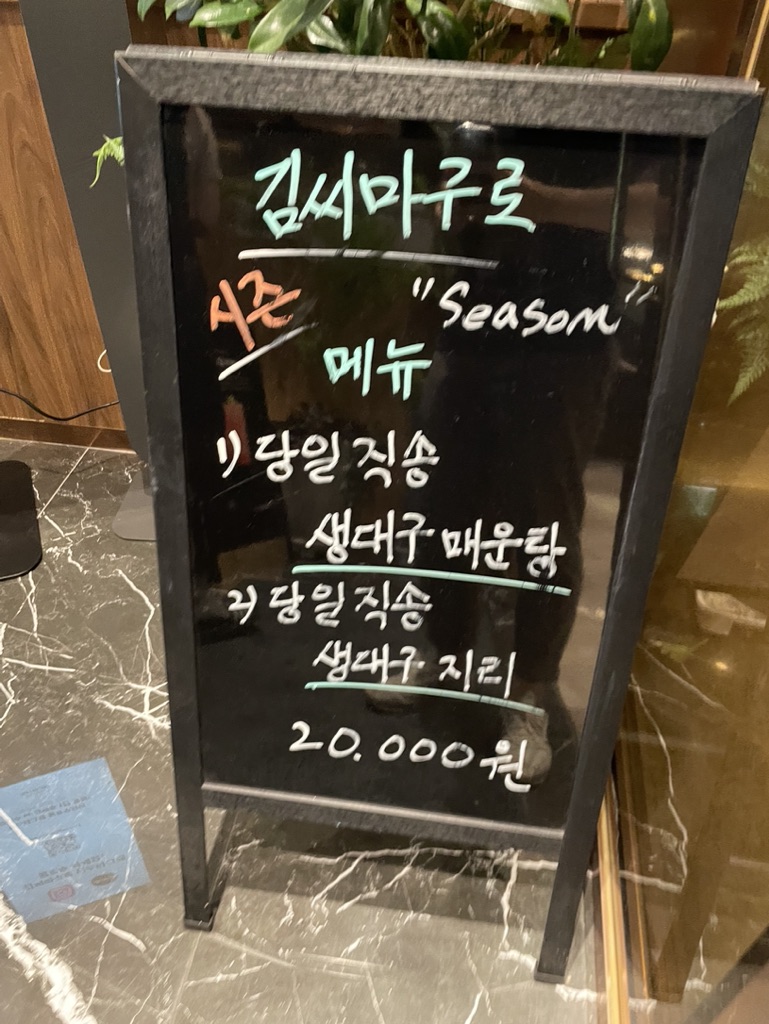 김씨마구로
시즌 "Season"
메뉴
1) 당일 직송
생대구 매운탕
2) 당일 직송
생대구 지리
20.000원